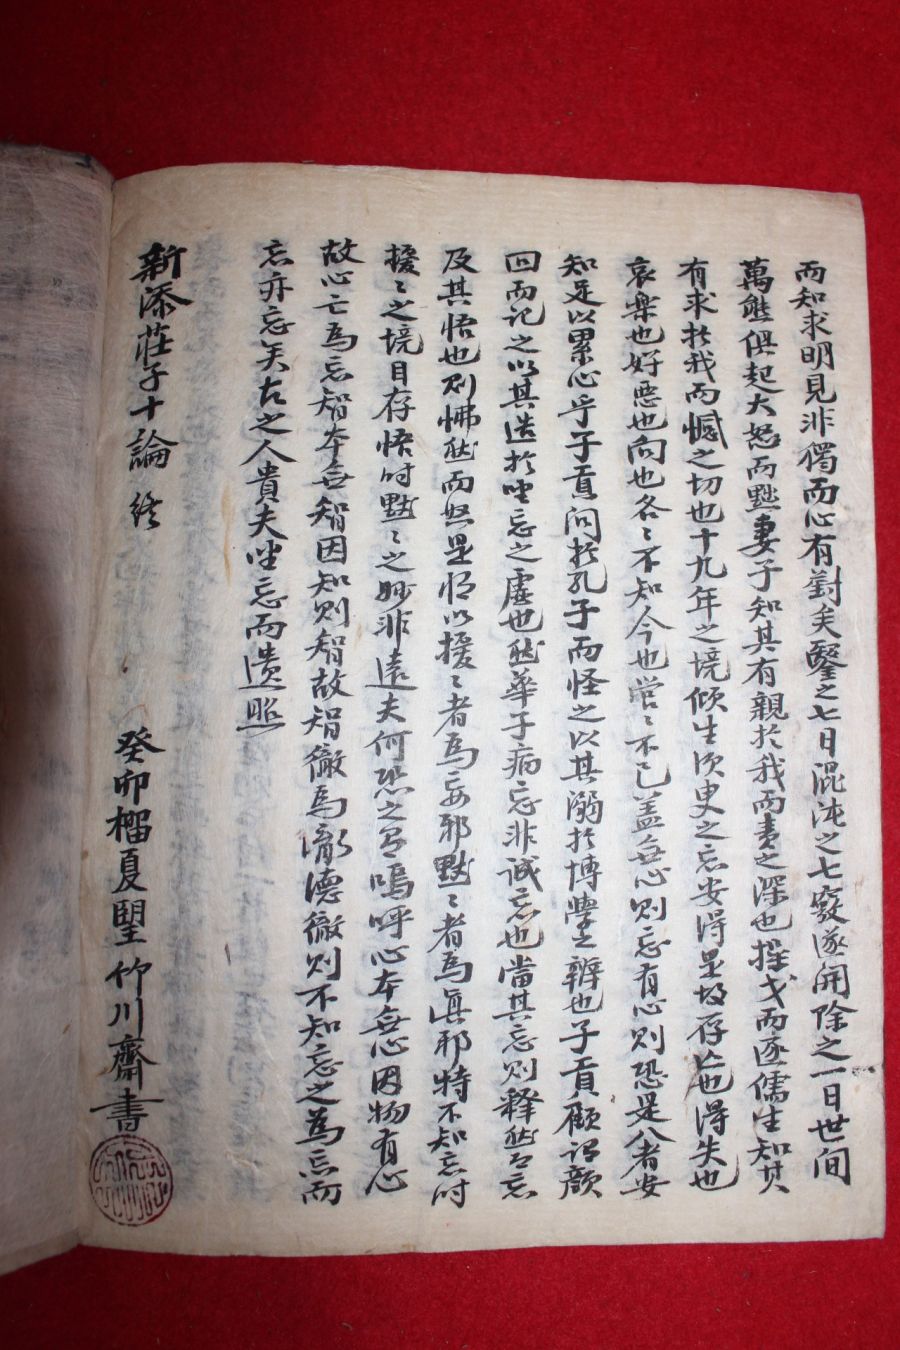 而知求明見非獨而心有對矣鑿之七日混沌之七竅遂開除之一日世间
萬態俱起大怒而黜妻子知其有親於我而責之深也操戈而逐儒生知其
有求扵我而憾之切也十九年之境倾生须臾之忘安得㫷故存亡也得失也
哀樂也好惡也向也各〻不知今也営〻不已盖無心则忘有心则恐是八者安
知足以累心乎子貢问扵孔子而怪之以其溺扵博學之辨也子貢顾谓顔
回而记之以其造扵坐忘之虚也然華子病忘非诚忘也當其忘则释然而忘
及其悟也则怫然而怒是惟以擾〻者為妄耶黙〻者為真耶特不知忘时
擾〻之境目存悟时黙〻之妙非遠夫何恐之有嗚呼心本無心因物有心
故心亡為忘智本無智因知则智故智徹為徹德徹则不知忘之為忘而
忘亦忘矣古之人貴夫坐忘而遗照
新添莊子十論 终
癸卯榴夏朢竹川齋書